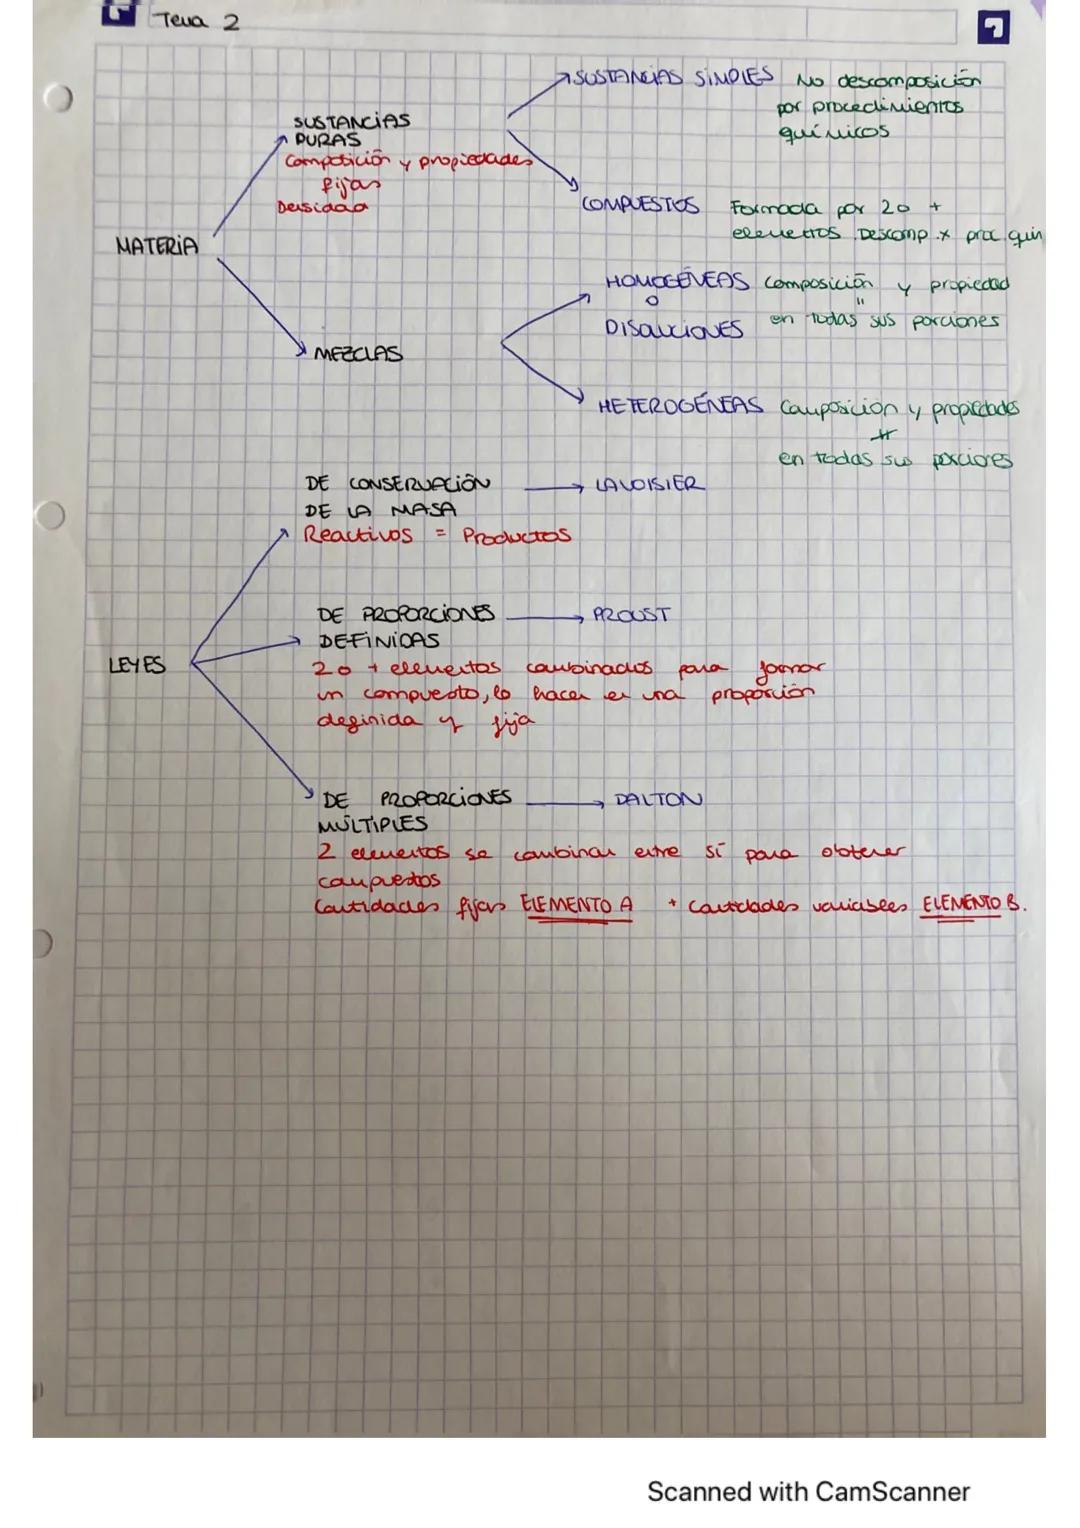 Tema 2
SUSTANCIAS SIMPLES No descomposición
por procedimientos
químicos
SUSTANCIAS
PURAS
Composición y propiedades
fijas
Densidad
COMPUESTOS Formada por 2 o +
elementos Descomp. x proc. quím
MATERIA
HOMOGÉNEAS Composición y propiedad
o "
DISOLUCIONES en todas sus porciones
MEZCLAS
HETEROGÉNEAS Composición y propiedades
≠
en todas sus porciones
DE CONSERVACIÓN → LAVOISIER
DE LA MASA
Reactivos = Productos
DE PROPORCIONES → PROUST
DEFINIDAS
LEYES
2 o + elementos combinados para formar
un compuesto, lo hacen en una proporción
definida y fija
DE PROPORCIONES → DALTON
MÚLTIPLES
2 elementos se combinan entre sí para obtener
compuestos
Cantidades fijas ELEMENTO A + cantidades variables ELEMENTO B.
Scanned with CamScanner